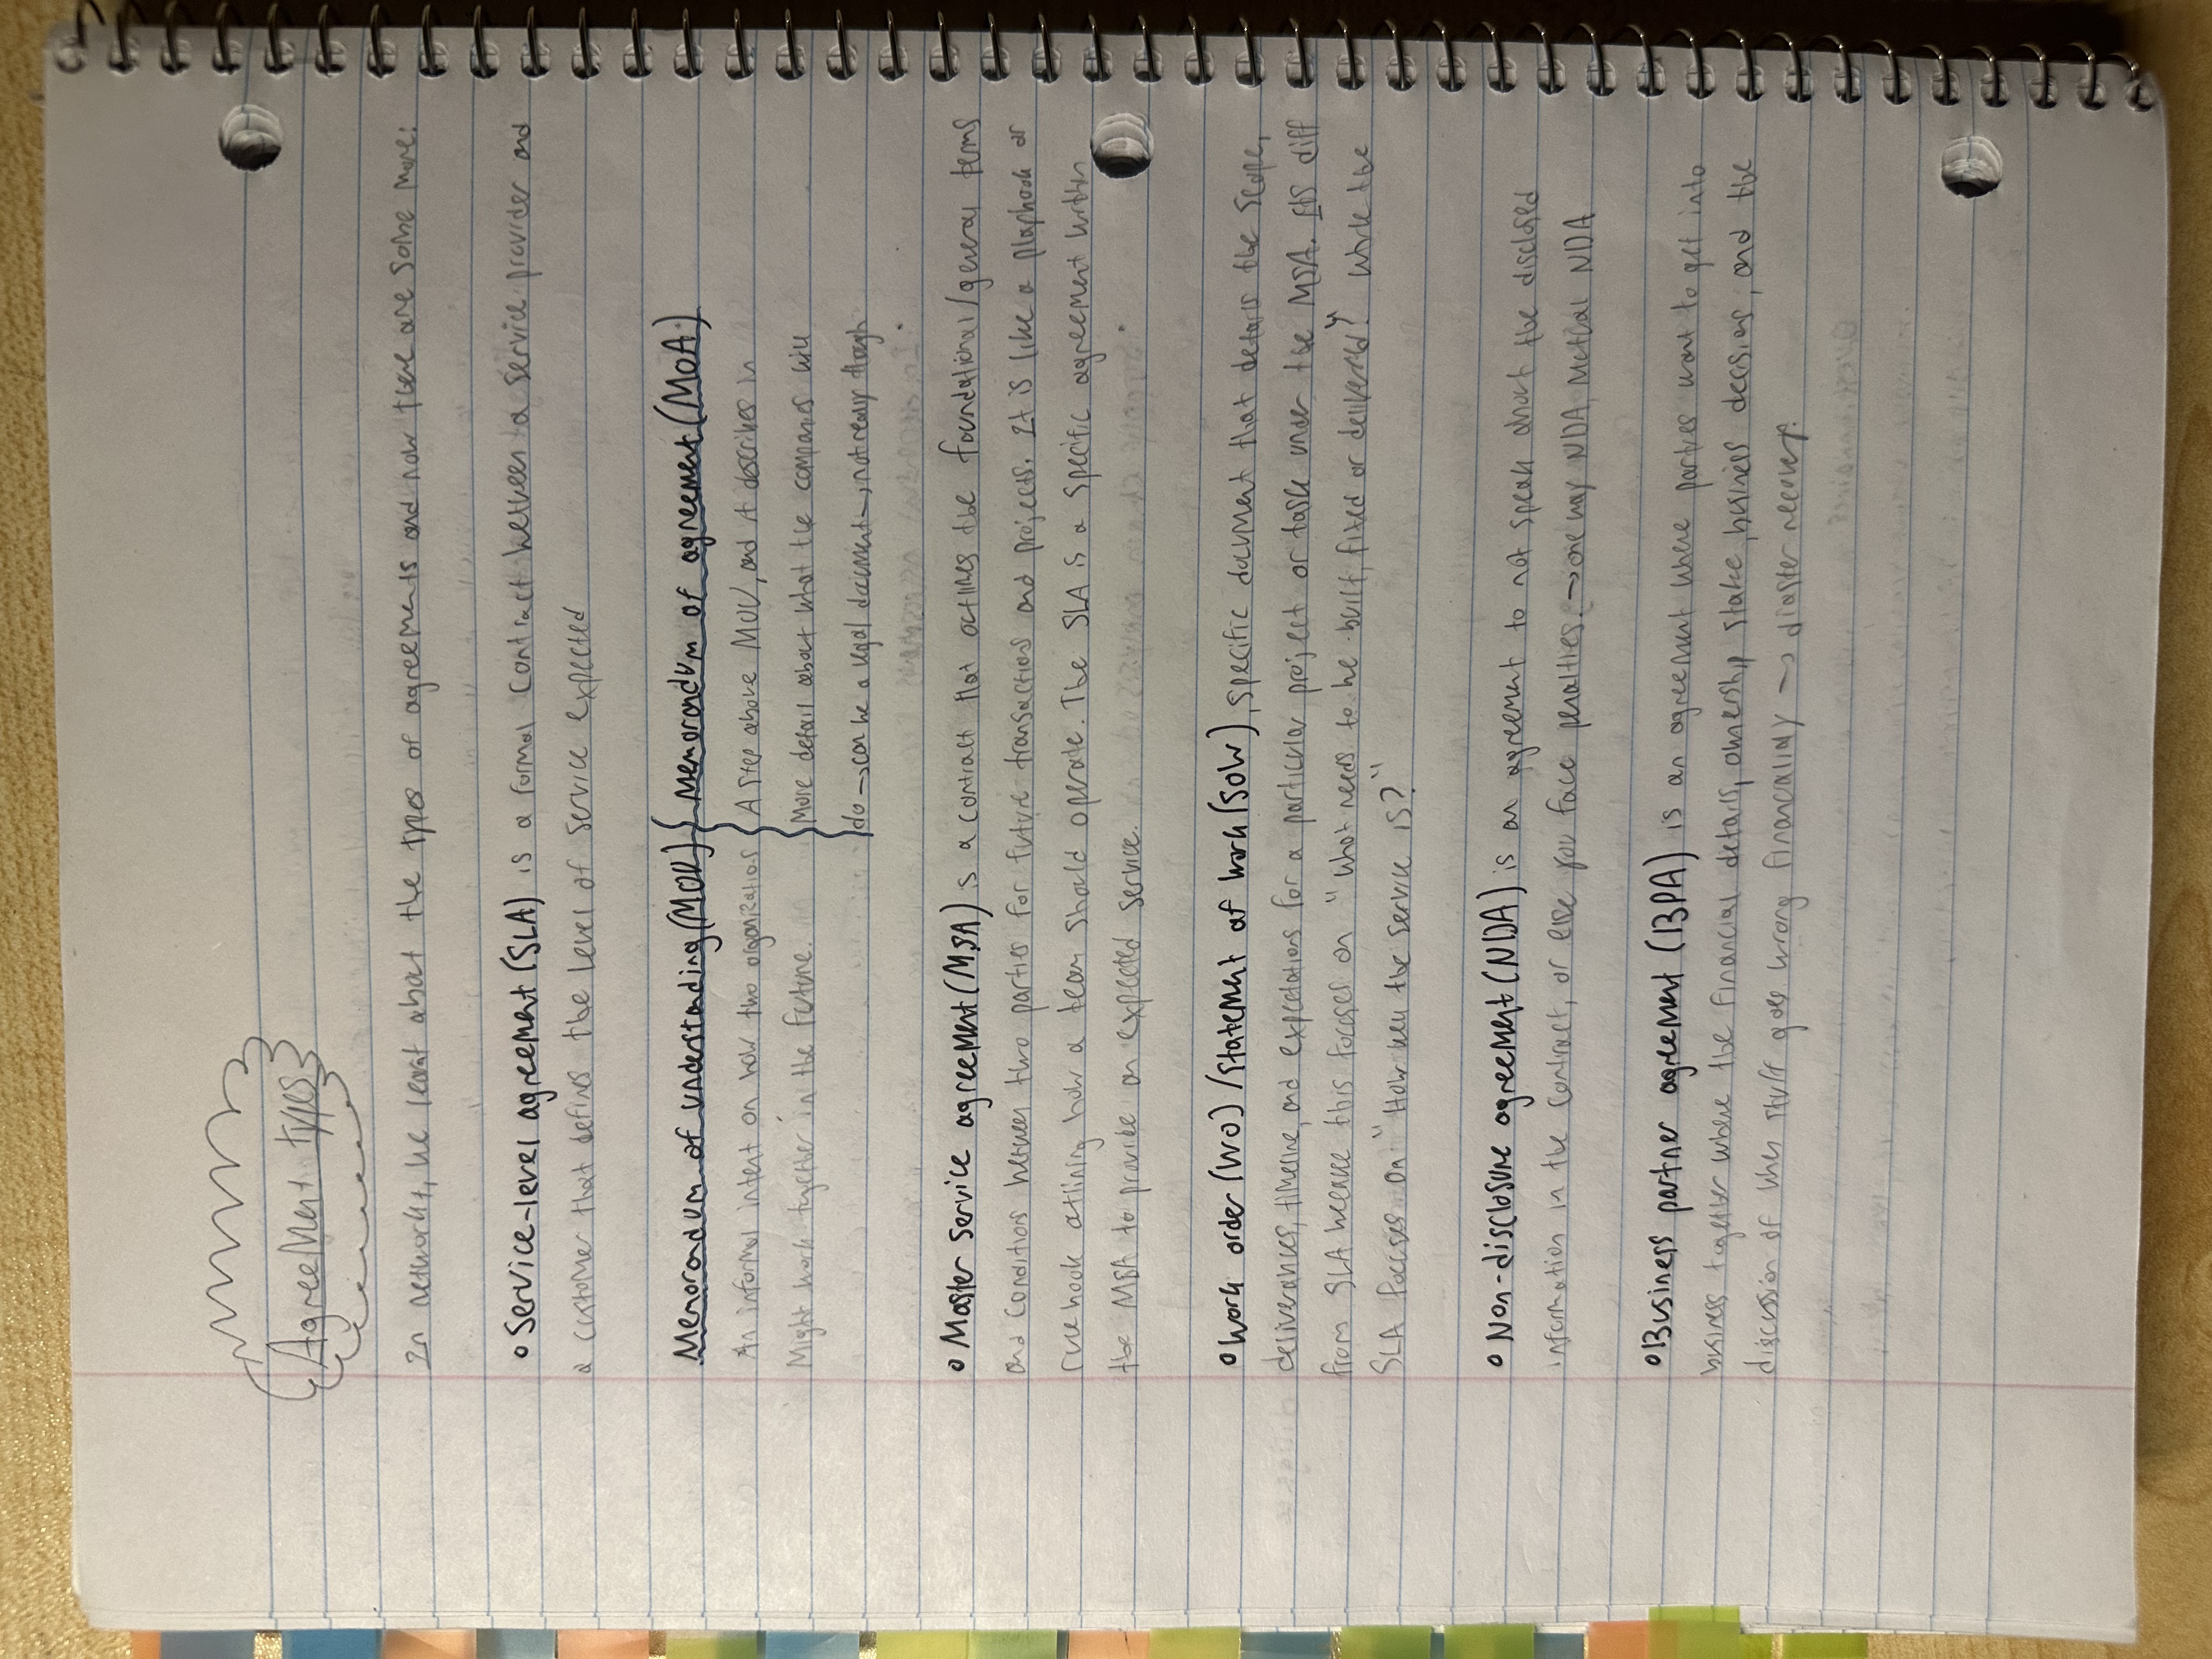 Agreement types
In network+, we learnt about the types of agreements and now there are some more:
Service-level agreement (SLA) is a formal contract between a service provider and
a customer that defines the level of service expected
Memorandum of understanding (MOU)
An informal intent on how two organizations
Might work together in the future.
Memorandum of agreement (MOA)
A step above MOU, and it describes in
More detail about what the companies will
do → can be a legal document →, not really though
Master service agreement (MSA) is a contract that outlines the foundational/general terms
and conditions between two parties for future transactions and projects. It is like a playbook or
rule book outlining how a team should operate. The SLA is a specific agreement within
the MSA to provide an expected service.
Work order (WO) / Statement of work (SOW), specific document that details the scope,
timeline, and expectations for a particular project or task under the MSA. Its diff
from SLA because this focuses on "what needs to be built, fixed or delivered?" While the
SLA focuses on "How well the service is?"
Non-disclosure agreement (NDA) is an agreement to not speak about the disclosed
information in the contract, or else you face penalties. → one way NDA, Mutual NDA
Business partner agreement (BPA) is an agreement where parties want to get into
business together where the financial details, ownership stake, business decisions, and the
discussion of when stuff goes wrong financially → diaster recovery.